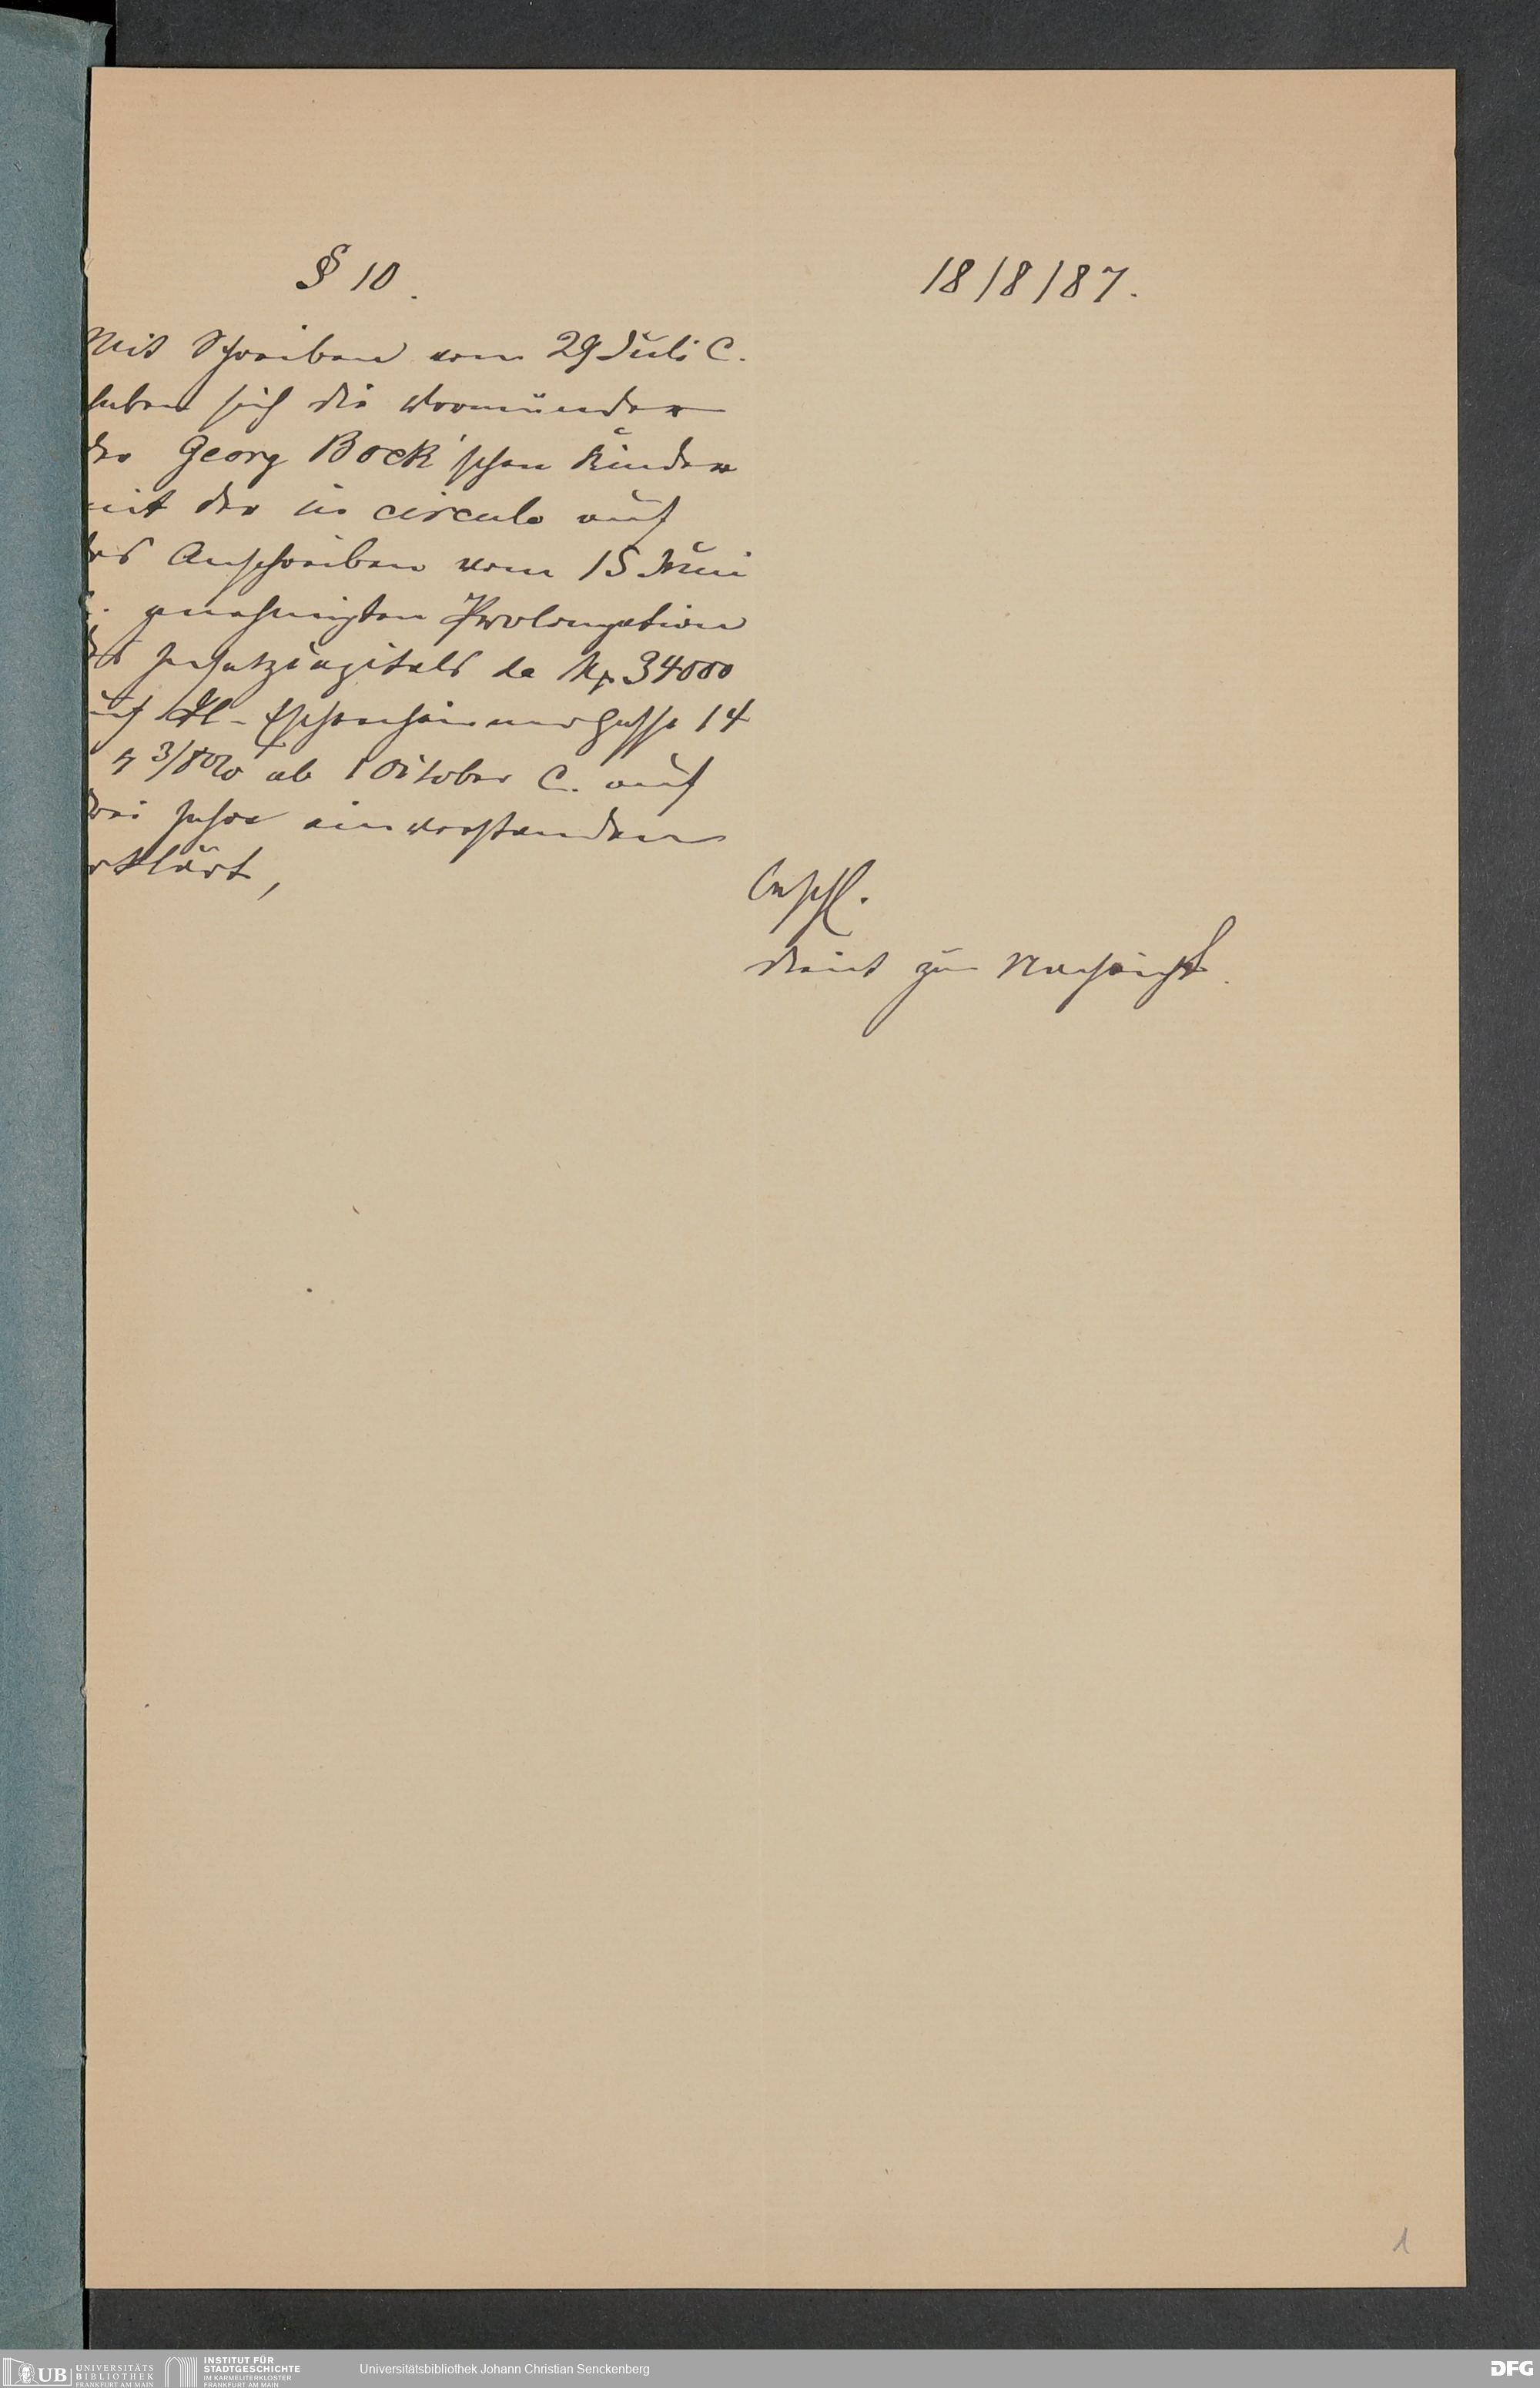 § 10.
18/8/87.
Mit Schreiben vom 29 Juli c.
haben sich die Vormünder
der Georg Bock'schen Kinder
mit der in circulo auf
das Anschreiben vom 15 Juni
c. genehmigten Prolongation
des Insatzkapitals de Mk 34000
auf Kl- Eschenheimergasse 14
4 3/8 % ab 1 October c. auf
drei Jahre einverstanden
erklärt,
Beschl.
dient zur Nachricht.
1
UB UNIVERSITÄTS
BIBLIOTHEK
FRANKFURT AM MAIN
INSTITUT FÜR
STADTGESCHICHTE
IM KARMELITERKLOSTER
FRANKFURT AM MAIN
Universitätsbibliothek Johann Christian Senckenberg
DFG